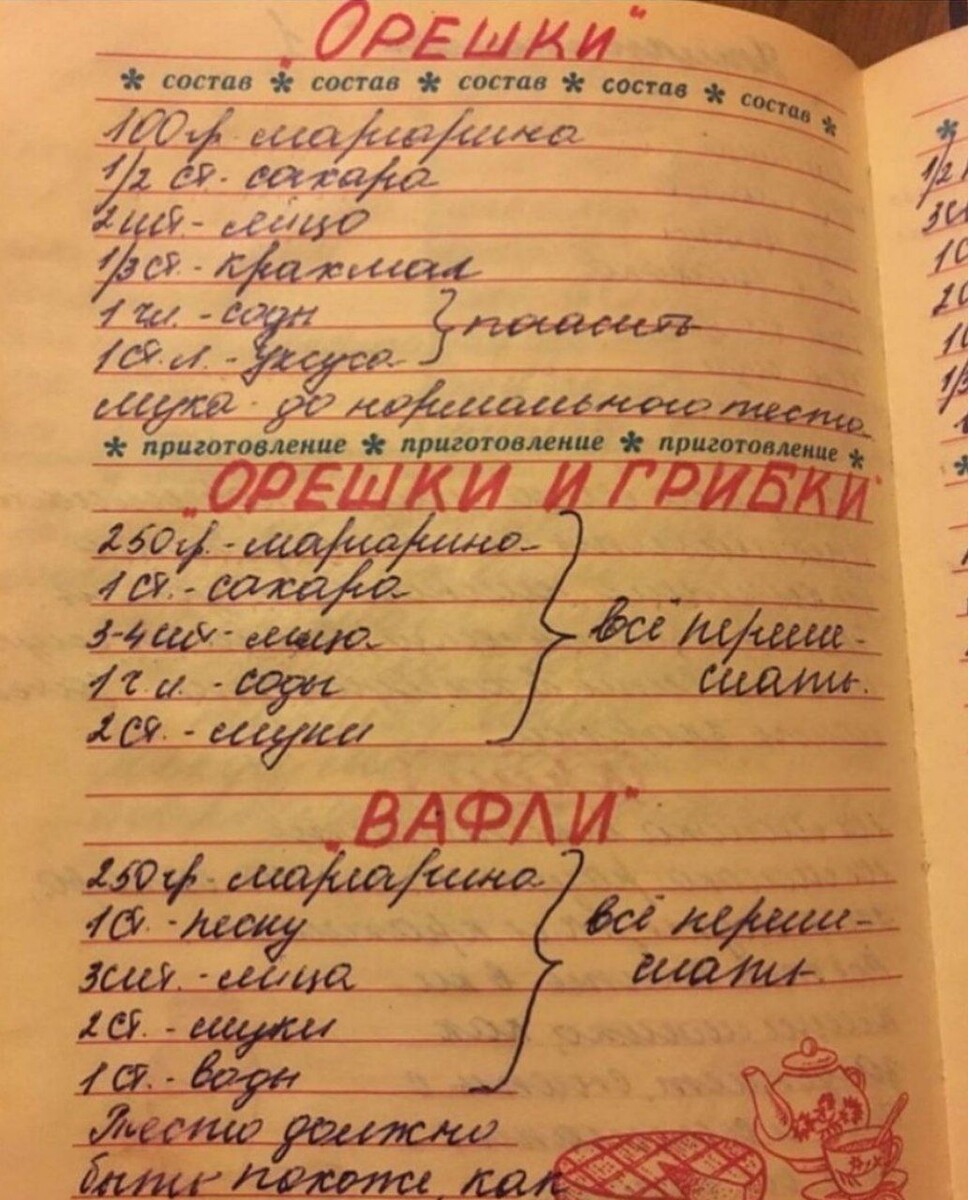 „ОРЕШКИ"
* состав * состав * состав * состав * состав *
100 гр. маргарина
1/2 ст. - сахара
2 шт. - яйцо
1/3 ст. - крахмал
1 ч л. - соды } погасить
1 ст. л. - уксуса
мука - до нормального теста
* приготовление * приготовление * приготовление *
„ОРЕШКИ И ГРИБКИ"
250 гр. - маргарина
1 ст. - сахара
3-4 шт. - яйца
1 ч. л. - соды
2 ст. - муки
всё переме-
шать.
„ВАФЛИ"
250 гр. - маргарина
1 ст. - песку
3 шт. - яйца
2 ст. - муки
1 ст. - воды
всё переме-
шать.
Тесто должно
быть похоже, как
*
1/2
10
20
10
1/3
*